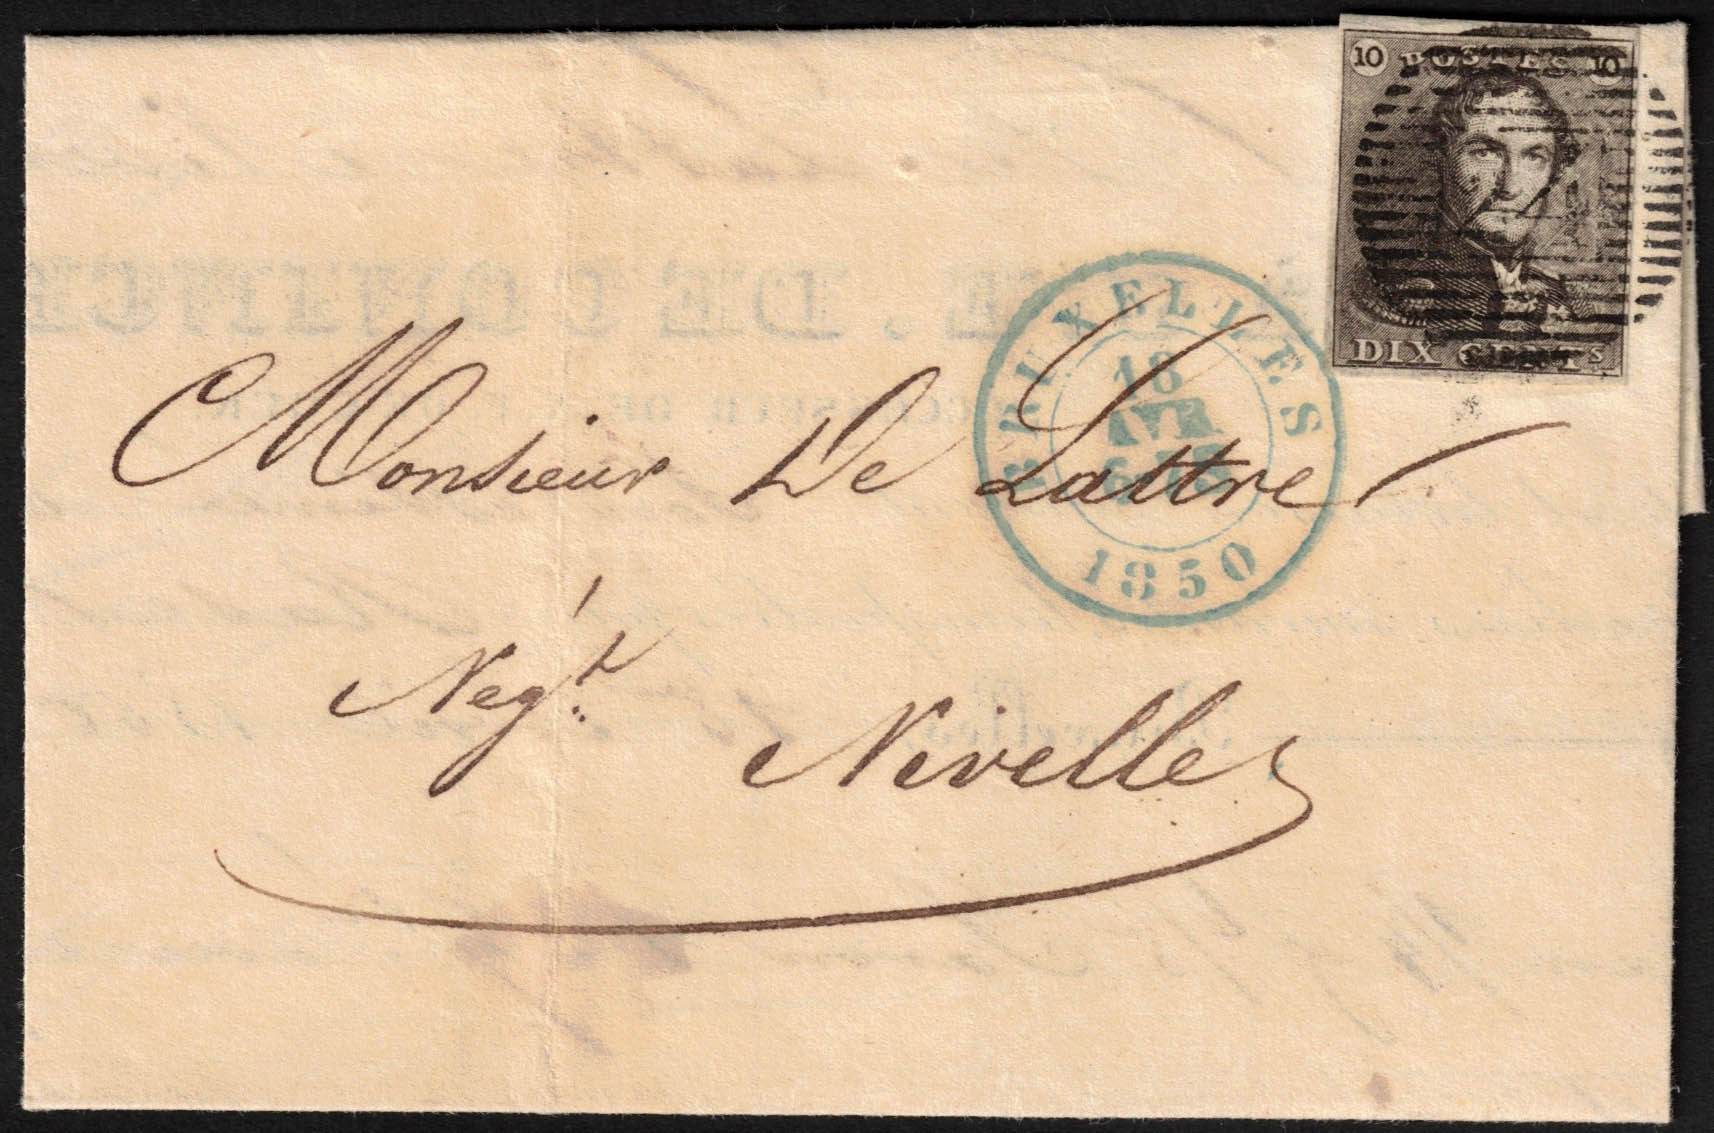 10 POSTES 10
DIX CENTS
BRUXELLES
18
1850
Monsieur De Lattre
Negt.
Nivelles